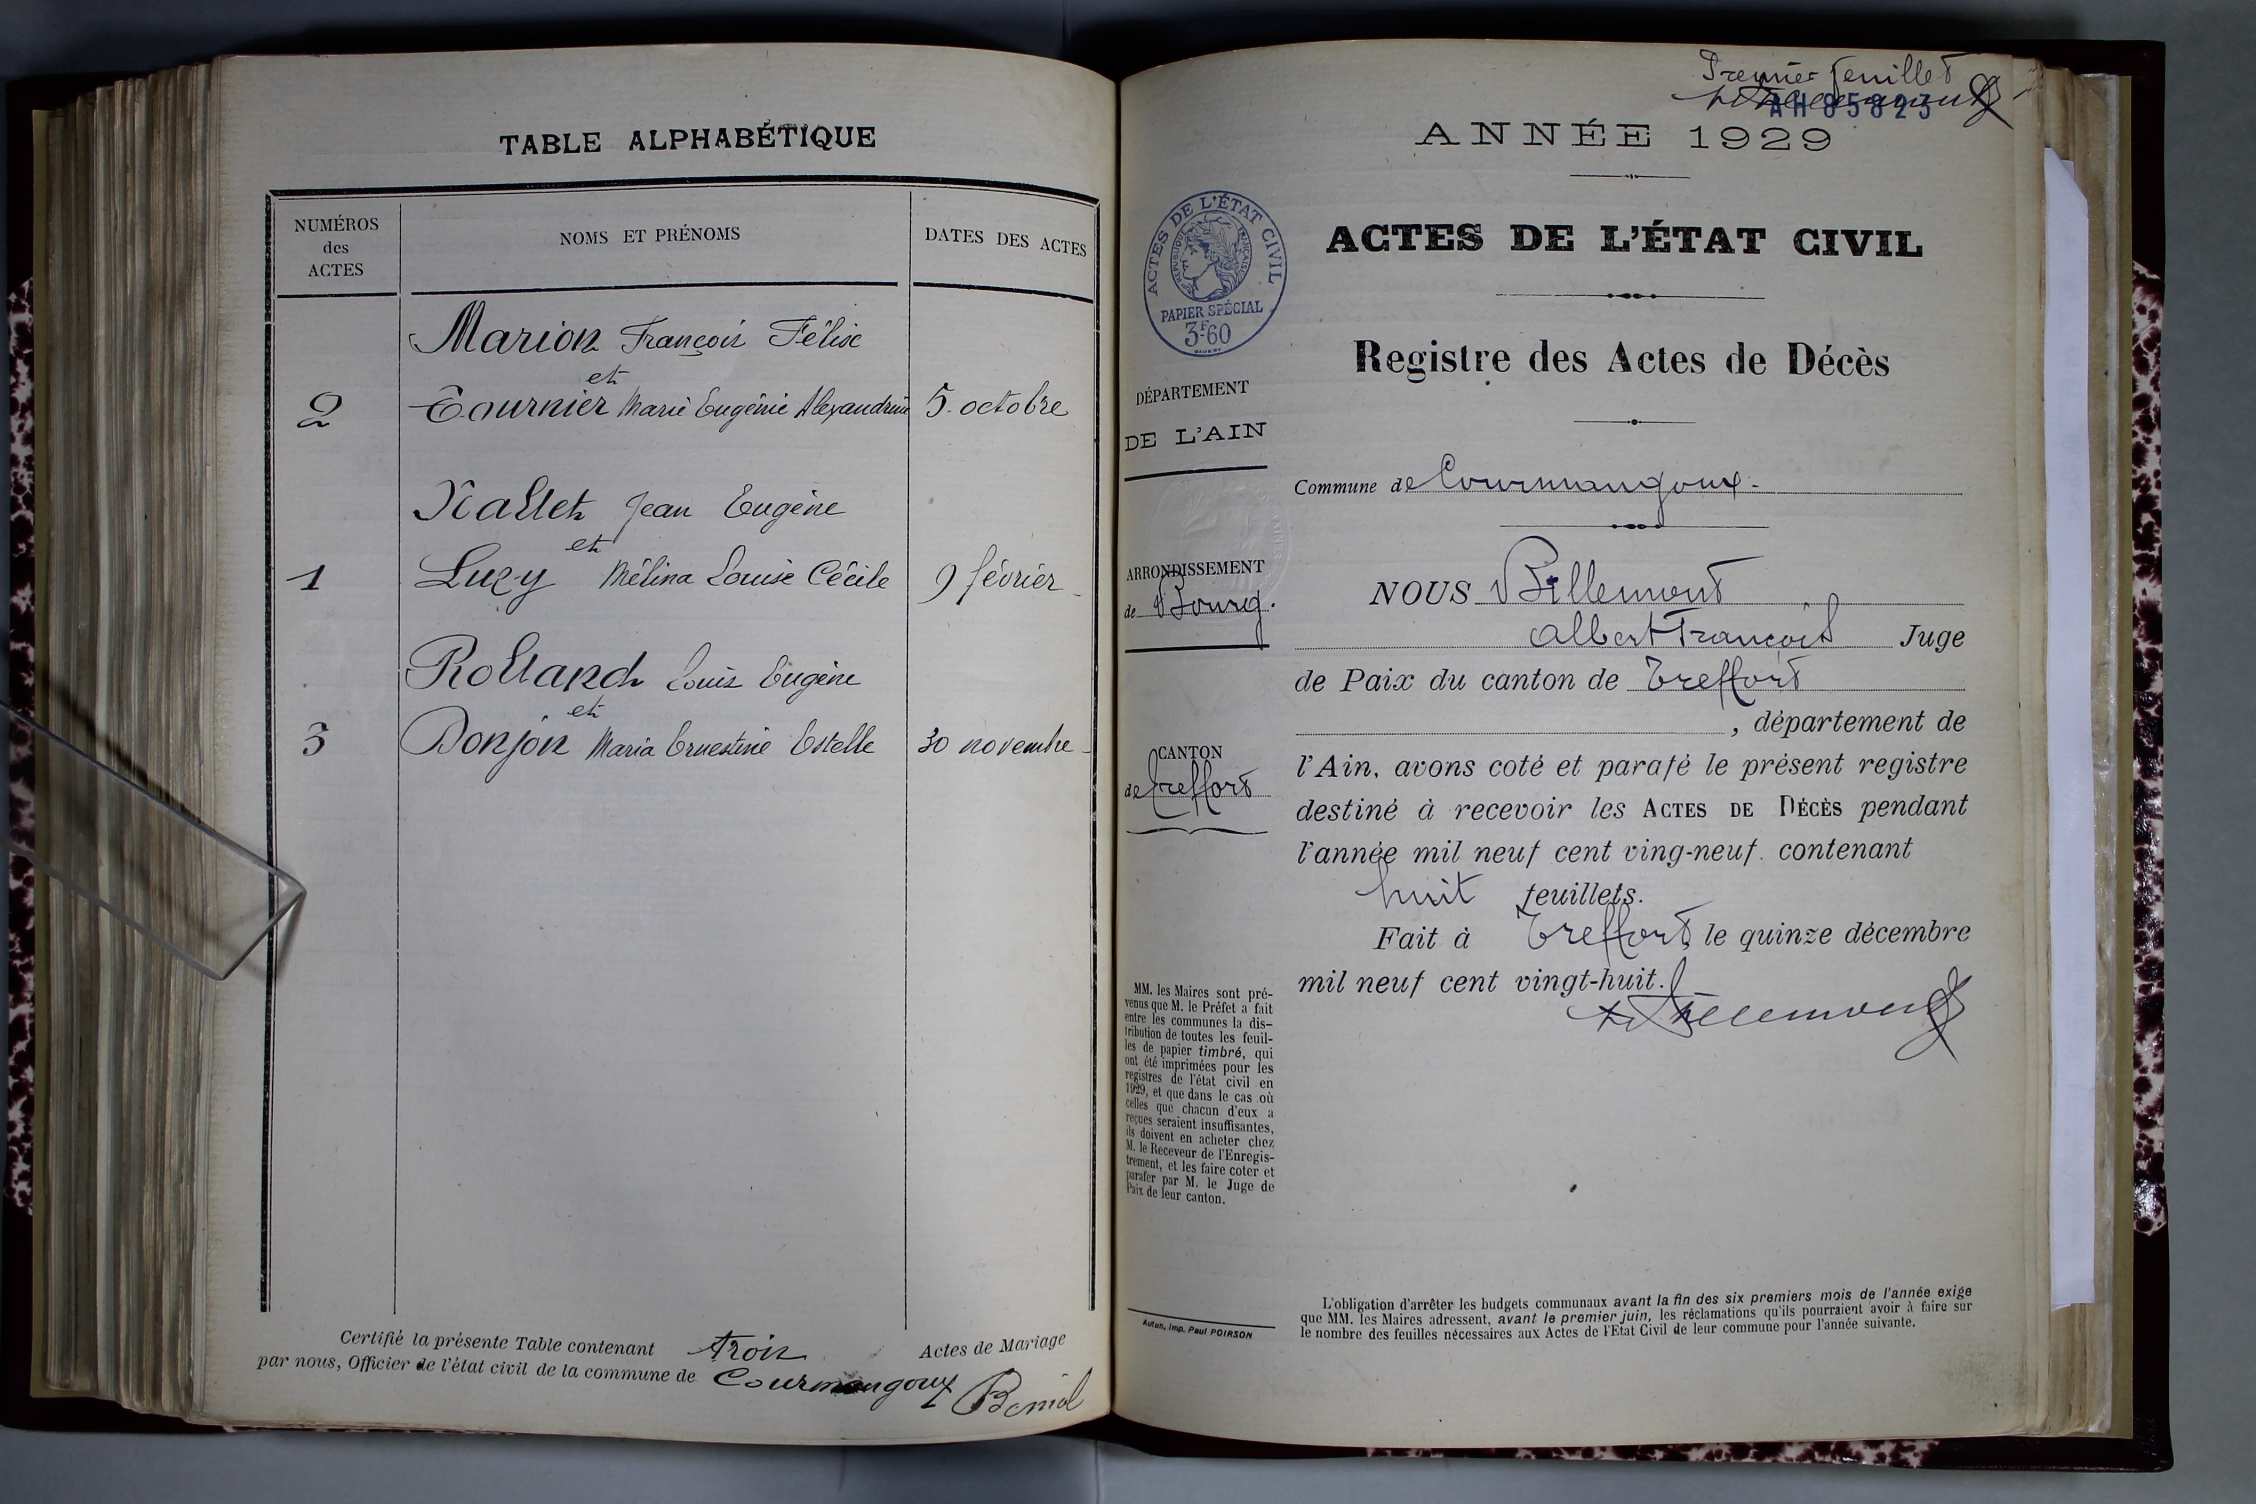 TABLE ALPHABÉTIQUE
NUMÉROS des ACTES
NOMS ET PRÉNOMS
DATES DES ACTES
Marion François Félix
et
2 Tournier Marie Eugénie Alexandrine 5 octobre
Nallet Jean Eugène
et
1 Luzy Mélina Louise Cécile 9 février
Rolland Louis Eugène
et
3 Donjon Maria Ernestine Estelle 30 novembre
Certifié la présente Table contenant trois Actes de Mariage
par nous, Officier de l'état civil de la commune de Courmangoux
Premier feuillet
AH 85823
ANNÉE 1929
ACTES DE L'ÉTAT CIVIL
RÉPUBLIQUE FRANÇAISE
PAPIER SPÉCIAL
3F.60
ACTES DE L'ÉTAT CIVIL
Registre des Actes de Décès
DÉPARTEMENT
DE L'AIN
Commune de Courmangoux
ARRONDISSEMENT
de Bourg.
CANTON
de Treffort
NOUS Billemont
Albert François Juge
de Paix du canton de Treffort
, département de
l'Ain, avons coté et parafé le présent registre
destiné à recevoir les ACTES DE DÉCÈS pendant
l'année mil neuf cent ving-neuf. contenant
huit feuillets.
Fait à Treffort, le quinze décembre
mil neuf cent vingt-huit.
MM. les Maires sont pré-
venus que M. le Préfet a fait
entre les communes la dis-
tribution de toutes les feuil-
les de papier timbré, qui
ont été imprimées pour les
registres de l'état civil en
1929, et que dans le cas où
celles que chacun d'eux a
reçues seraient insuffisantes,
ils doivent en acheter chez
M. le Receveur de l'Enregis-
trement, et les faire coter et
parafer par M. le Juge de
Paix de leur canton.
Autun, Imp. Paul POIRSON
L'obligation d'arrêter les budgets communaux avant la fin des six premiers mois de l'année exige
que MM. les Maires adressent, avant le premier juin, les réclamations qu'ils pourraient avoir à faire sur
le nombre des feuilles nécessaires aux Actes de l'Etat Civil de leur commune pour l'année suivante.